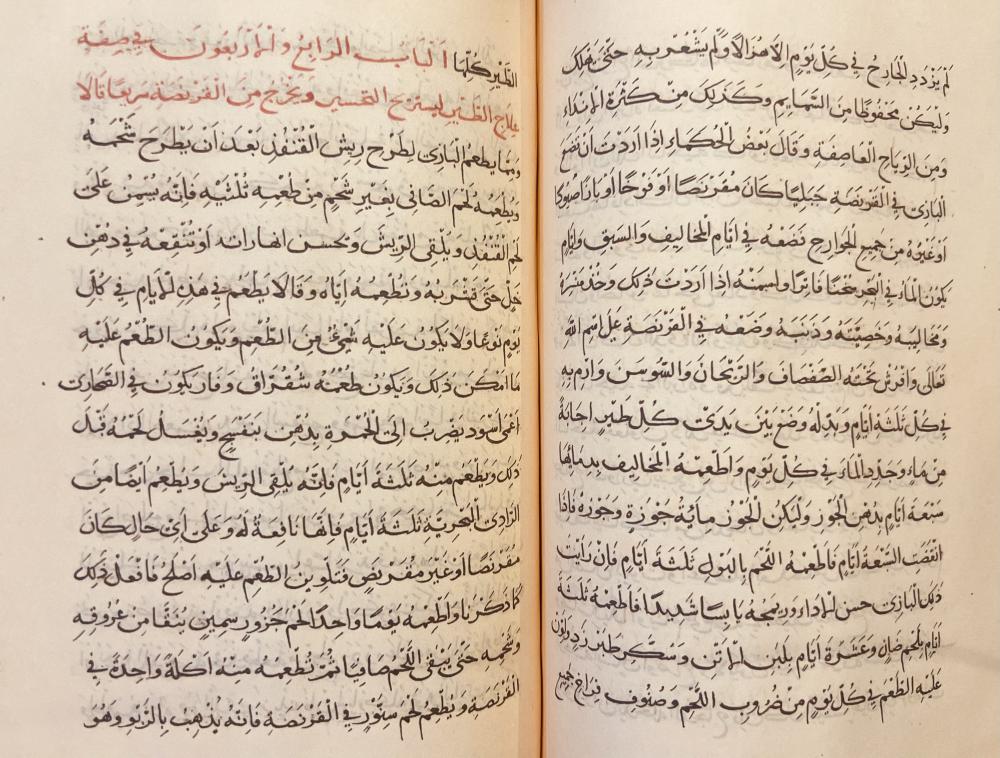 لَمْ يَزْدَدِ الْجَارِحُ فِي كُلِّ يَوْمٍ اِلاَّ هُزَالاً وَلَمْ يَشْعُرْ بِهِ حَتّٰى يَهْلِكَ
وَلْيَكُنْ مَحْفُوظًا مِنَ السَّمَايِمِ وَكَذٰلِكَ مِنْ كَثْرَةِ الْاَنْدَاءِ
وَمِنَ الرِّيَاحِ الْعَاصِفَةِ وَقَالَ بَعْضُ الْحُكَمَاءِ اِذَا اَرَدْتَ اَنْ تَضَعَ
الْبَازِىَ فِي الْقَرْنَصَةِ جَبَلِيًّا كَانَ مُقَرْنَصًا اَوْ فَرْخًا اَوْ بَازًا
اَوْ غَيْرَهُ مِنْ جَمِيعِ الْجَوَارِحِ تَضَعُهُ فِي اَيَّامِ الْمَخَالِيفِ وَالسَّبَقِ وَاَيَّامِ
يَكُونُ الْمَاءُ فِي الْبَحْرِ فَاتِرًا وَاسْمِنْهُ اِذَا اَرَدْتَ ذٰلِكَ وَخُذْ مِنْسَرَهُ
وَمَخَالِيبَهُ وَذَنَبَهُ وَضَعْهُ فِي الْقَرْنَصَةِ عَلَى اسْمِ اللّٰهِ
تَعَالَى وَافْرِشْ تَحْتَهُ الصَّفْصَافَ وَالرَّيْحَانَ وَالسَّوْسَنَ وَارْمِ بِهِ
فِي كُلِّ ثَلٰثَةِ اَيَّامٍ وَبَدِّلْهُ وَضَعْ بَيْنَ يَدَىْ كُلِّ طَيْرٍ اِجَانَةً
مِنْ مَاءٍ وَجَدِّدِ الْمَاءَ فِي كُلِّ يَوْمٍ وَاَطْعِمْهُ الْمَخَالِيفَ بِدِمَائِهَا
سَبْعَةَ اَيَّامٍ بِدُهْنِ الْجَوْزِ وَلْيَكُنِ الْجَوْزُ مِايَةَ جَوْزَةٍ وَجَوْزَةً فَاِذَا
انْقَضَتِ السَّبْعَةُ اَيَّامٍ فَاَطْعِمْهُ اللَّحْمَ بِالْبَوْلِ ثَلٰثَةَ اَيَّامٍ فَاِنْ رَاَيْتَ
ذٰلِكَ الْبَازِىَ حسن يَابِسًا شَدِيدًا فَاَطْعِمْهُ ثَلٰثَةَ
اَيَّامٍ بِلَحْمِ ضَانٍ وَعَشَرَةَ اَيَّامٍ بِلَبَنِ الْاُتُنِ وَسُكَّرِ طَبَرْزَدٍ
عَلَيْهِ الطُّعْمَ فِي كُلِّ يَوْمٍ مِنْ ضُرُوبِ اللَّحْمِ وَصُنُوفِ فِرَاخِ جَمِيعِ
الطَّيْرِ كُلِّهَا اَلْبَابُ الرَّابِعُ وَالْاَرْبَعُونَ فِي صِفَةِ
عِلَاجِ الطَّيْرِ لِيَسْتَرِيحَ وَيَخْرُجَ مِنَ الْقَرْنَصَةِ سَرِيعًا قَالاَ
وَمِمَّا يُطْعَمُ الْبَازِى لِطَرْحِ رِيشِ الْقُنْفُذِ بَعْدَ اَنْ يُطْرَحَ شَحْمُهُ
وَيُطْعَمُ لَحْمَ الضَّانِى بِغَيْرِ شَحْمٍ مِنْ طُعْمِهِ ثُلْثَيْهِ فَاِنَّهُ يُسْمِنُ عَلَى
لَحْمِ الْقُنْفُذِ وَيُلْقِى الرِّيشَ وَيحسن اَوْ تُنْقِعُهُ فِي دُهْنِ
خَلٍّ حَتّٰى تَشْرَبَهُ وَتُطْعِمُهُ اِيَّاهُ وَقَالاَ يُطْعَمُ فِي هٰذِهِ الْاَيَّامِ فِي كُلِّ
يَوْمٍ نَوْعًا وَلَا يَكُونُ عَلَيْهِ شَىْءٌ مِنَ الطُّعْمِ وَيَكُونُ الطُّعْمُ عَلَيْهِ
مَا اَمْكَنَ ذٰلِكَ وَيَكُونُ طُعْمُهُ شُقُرَّاقَ وَفَارٍ يَكُونُ فِي الصَّحَارِى
اَعْمٰى اَسْوَدَ يَضْرِبُ اِلَى الْحُمْرَةِ بِدُهْنِ بَنَفْسَجٍ وَيُغْسَلُ لَحْمُهُ قَبْلَ
ذٰلِكَ وَيُطْعَمُ مِنْهُ ثَلٰثَةَ اَيَّامٍ فَاِنَّهُ يُلْقِى الرِّيشَ وَيُطْعَمُ اَيْضًا مِنَ
الْبَحْرِيَّةِ ثَلٰثَةَ اَيَّامٍ فَاِنَّهَا نَافِعَةٌ لَهُ وَعَلٰى اَىِّ حَالٍ كَانَ
مُقَرْنَصًا اَوْ غَيْرَ مُقَرْنَصٍ فَتَلْوِينُ الطُّعْمِ عَلَيْهِ اَصْلَحُ فَافْعَلْ ذٰلِكَ
كَمَا ذَكَرْنَا وَاَطْعِمْهُ يَوْمًا وَاحِدًا لَحْمَ جَزُورٍ سَمِينٍ يُنَقَّا مِنْ عُرُوقِهِ
وَشَحْمِهِ حَتّٰى يَبْقَى اللَّحْمُ صَافِيًا ثُمَّ تُطْعِمُهُ مِنْهُ اَكْلَةً وَاحِدَةً فِي
الْقَرْنَصَةِ وَيُطْعَمُ لَحْمَ سِنَّوْرٍ فِي الْقَرْنَصَةِ فَاِنَّهُ يَذْهَبُ بِالرَّبْوِ وَهُوَ